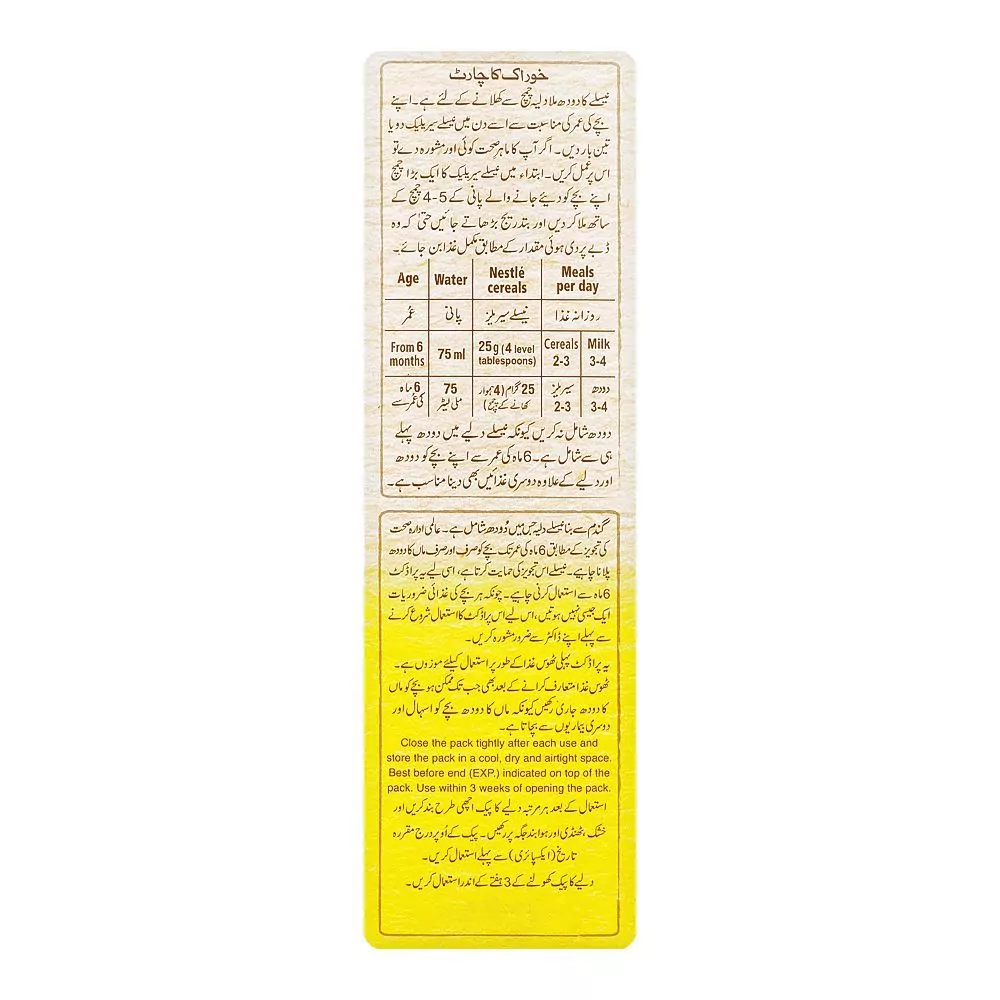 خوراک کا چارٹ
نیسلے کا دودھ ملا دلیہ چمچ سے کھلانے کے لئے ہے۔ اپنے
بچے کی عمر کی مناسبت سے اسے دن میں نیسلے سیریلیک دو یا
تین بار دیں۔ اگر آپ کا ماہرِ صحت کوئی اور مشورہ دے تو
اس پر عمل کریں۔ ابتداء میں نیسلے سیریلیک کا ایک بڑا چمچ
اپنے بچے کو دیئے جانے والے پانی کے 5-4 چمچ کے
ساتھ ملا کر دیں اور بتدریج بڑھاتے جائیں حتیٰ کہ وہ
ڈبے پر دی ہوئی مقدار کے مطابق مکمل غذا بن جائے۔
Age Water Nestlé cereals Meals per day
عُمر پانی نیسلے سیریلز روزانہ غذا
From 6 months 75 ml 25g (4 level tablespoons) Cereals 2-3 Milk 3-4
6 ماہ کی عمر سے 75 ملی لیٹر 25 گرام (4 ہموار کھانے کے چمچ) سیریلز 2-3 دودھ 3-4
دودھ شامل نہ کریں کیونکہ نیسلے دلیے میں دودھ پہلے
ہی سے شامل ہے۔ 6 ماہ کی عمر سے اپنے بچے کو دودھ
اور دلیے کے علاوہ دوسری غذائیں بھی دینا مناسب ہے۔
گندم سے بنا نیسلے دلیہ جس میں دُودھ شامل ہے۔ عالمی ادارہ صحت
کی تجویز کے مطابق 6 ماہ کی عمر تک بچے کو صرف اور صرف ماں کا دودھ
پلانا چاہیے۔ نیسلے اس تجویز کی حمایت کرتا ہے، اسی لیے یہ پراڈکٹ
6 ماہ سے استعمال کرنی چاہیے۔ چونکہ ہر بچے کی غذائی ضروریات
ایک جیسی نہیں ہوتیں، اس لیے اس پراڈکٹ کا استعمال شروع کرنے
سے پہلے اپنے ڈاکٹر سے ضرور مشورہ کریں۔
یہ پراڈکٹ پہلی ٹھوس غذا کے طور پر استعمال کیلئے موزوں ہے۔
ٹھوس غذا متعارف کرانے کے بعد بھی جب تک ممکن ہو بچے کو ماں
کا دودھ جاری رکھیں کیونکہ ماں کا دودھ بچے کو اسہال اور
دوسری بیماریوں سے بچاتا ہے۔
Close the pack tightly after each use and
store the pack in a cool, dry and airtight space.
Best before end (EXP.) indicated on top of the
pack. Use within 3 weeks of opening the pack.
استعمال کے بعد ہر مرتبہ دلیے کا پیک اچھی طرح بند کریں اور
خشک، ٹھنڈی اور ہوا بند جگہ پر رکھیں۔ پیک کے اُوپر درج مقررہ
تاریخ (ایکسپائری) سے پہلے استعمال کریں۔
دلیے کا پیک کھولنے کے 3 ہفتے کے اندر استعمال کریں۔